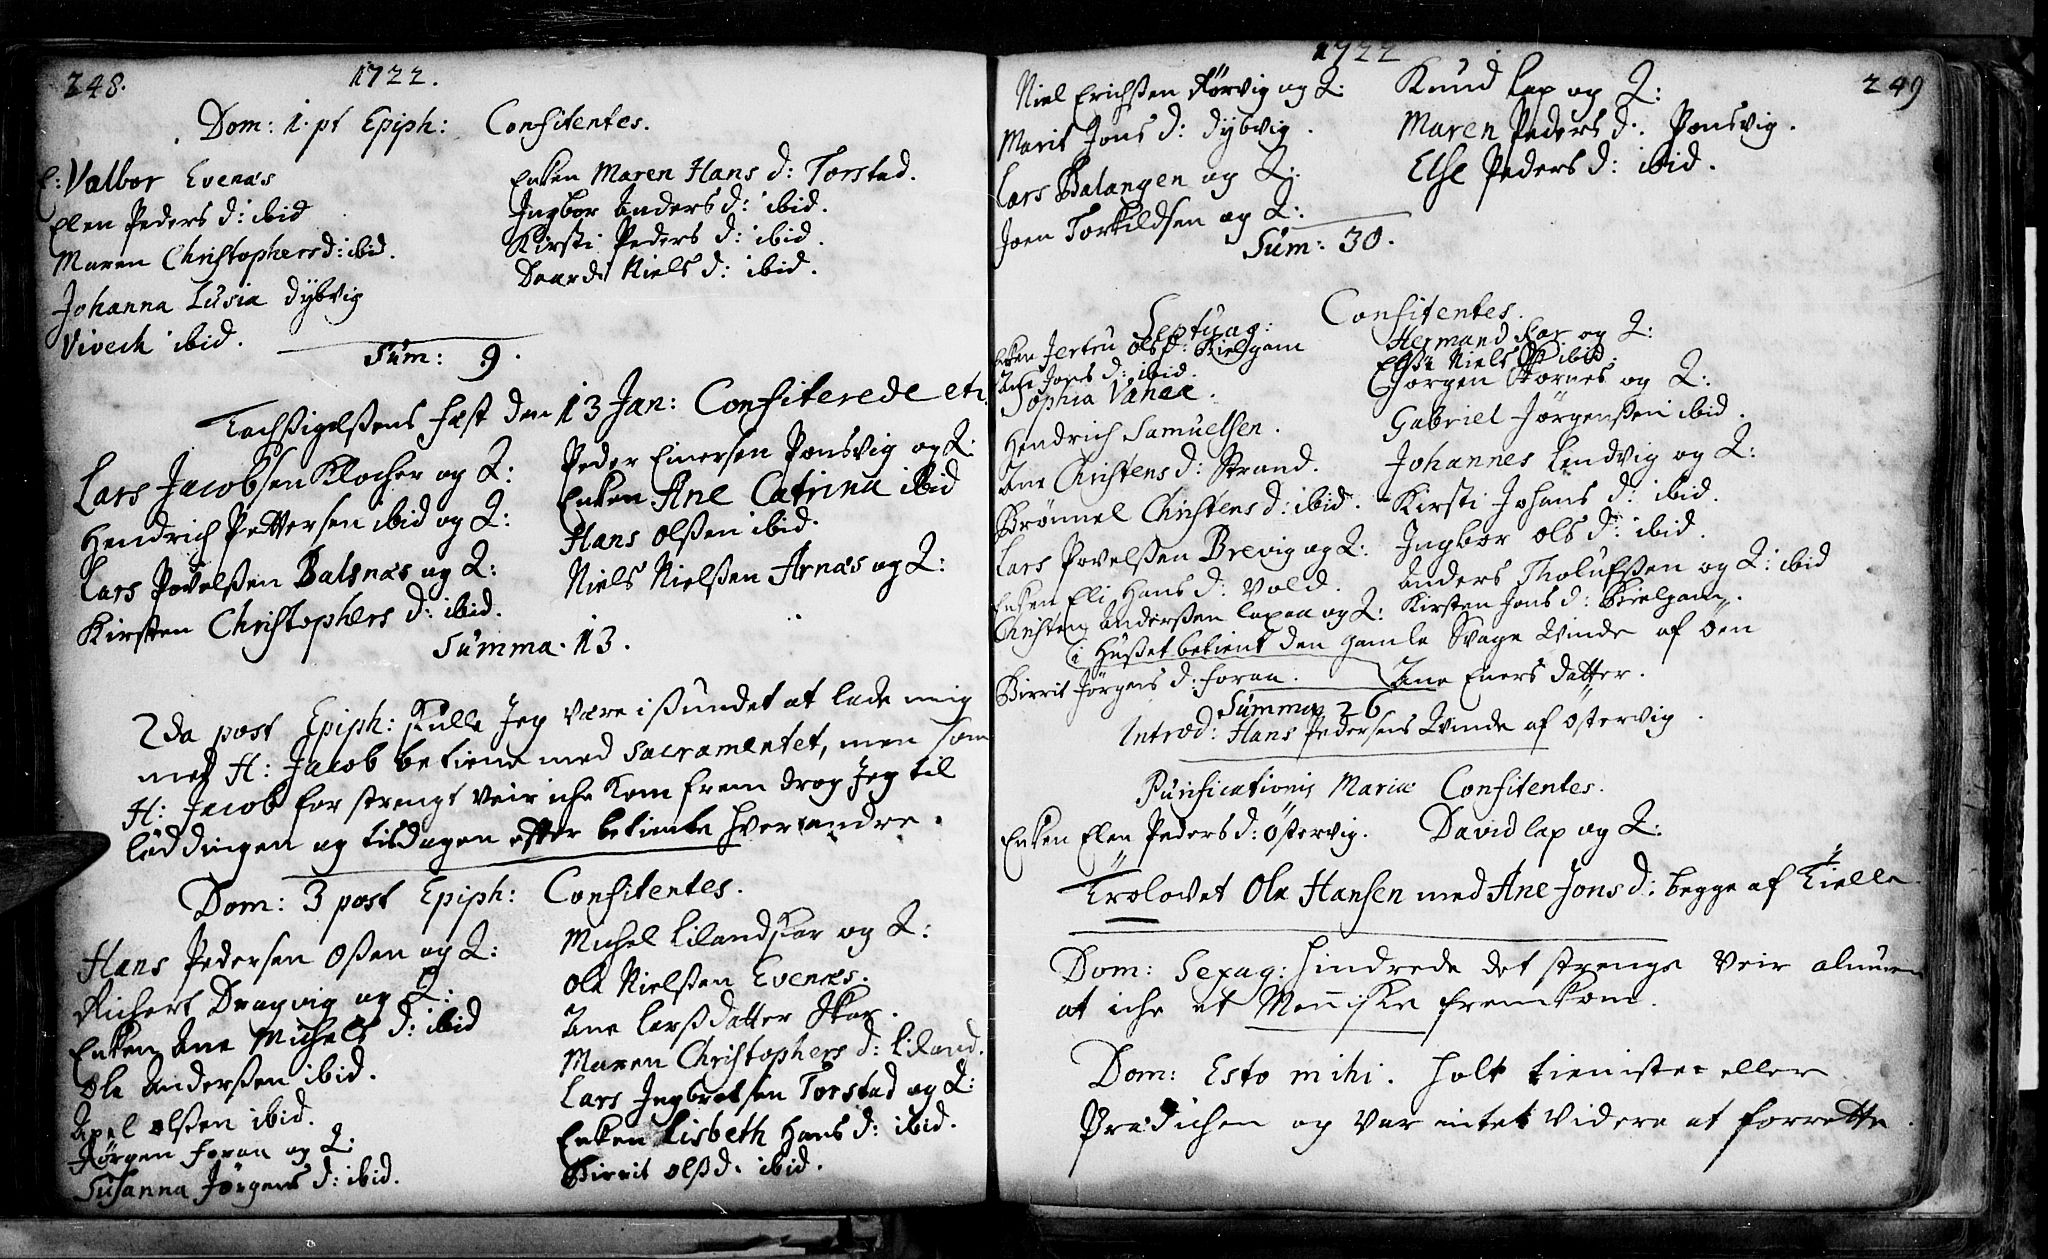 248.
1722.
Dom: 1. pt Epiph: Confitentes.
E: Valbor Evenæs
Elen Peders d: ibid
Maren Christophersd: ibid.
Johanna Lusia Dybvig
Vivech ibid.
Enken Maren Hans d: Torstad.
Ingbor Anders d: ibid.
Kirsti Peders d: ibid.
Daarde Niels d: ibid.
Sum: 9.
Tachsigelsens fæst den 13 Jan: Confiterede etc.
Lars Jacobsen Klocher og Q:
Hendrich Pettersen ibid og Q:
Lars Povelsen Balsnæs og Q:
Kirsten Christophers d: ibid.
Peder Einersen Ponsvig og Q:
Enken Ane Catrina ibid
Hans Olsen ibid.
Niels Nielsen Arnæs og Q:
Summa. 13.
2da post Epiph: skulle Jeg være i sundet at lade mig
med H: Jacob betiene med sacramentet, men som
H: Jacob for strengt veir iche kom frem drog Jeg til
Lødingen og tisdagen efter betiente hverandre.
Dom: 3 post Epiph: Confitentes.
Hans Pedersen Osen og Q:
Richert Dragvig og Q:
Enken Ane Michels d: ibid
Ole Andersen ibid.
Axel Olsen ibid.
Jørgen Foraa og Q:
Susanna Jørgens d: ibid.
Michel Lilandskar og Q:
Ole Nielsen Evenæs.
Ane Larsdatter Skar.
Maren Christophers d: Liland.
Lars Ingbretsen Torstad og Q:
Enken Lisbeth Hans d: ibid.
Birrit Olsd. ibid.
1722
249
Niel Erichsen Kørvig og Q:
Marit Jons d: Dybvig.
Lars Balangen og Q:
Joen Torkildsen og Q:
Knud Lap og Q:
Maren Peders d: Ponsvig.
Else Peders d: ibid.
Sum: 30.
Septuag: Confitentes.
Enken Jertru Ols d: Kielgam
Ane Jons d: ibid.
Sophia Vanaa.
Hendrich Samuelsen.
Ane Christens d: Strand.
Brønnel Christens d: ibid.
Lars Povelsen Brevig og Q:
Enken Eli Hans d: Vold.
Christen Andersen Laxaa og Q:
Hermand Skar og Q:
Else Niels d: ibid.
Jørgen Stornes og Q:
Gabriel Jørgensen ibid.
Johannes Lendvig og Q:
Kirsti Johans d: ibid.
Ingbor Ols d: ibid.
Anders Tholufsen og Q: ibid
Kirsten Jons d: Kielgam.
i Huset betient den gamle svage Qvinde af Øen
Birrit Jørgens d: Foraa.
Ane Eners datter.
Summa 26
Introd: Hans Pedersens Qvinde af Østervig.
Purificationis Mariæ Confitentes.
Enken Elen Peders d: Østervig.
David Lap og Q:
Trolovet Ole Hansen med Ane Jons d: begge af Kielle
Dom: Sexag: hindrede det strenge veir almuen
at iche et Menniske fremkom.
Dom: Esto mihi. Holt tieniste eller
Prædichen og var intet videre at forrette.